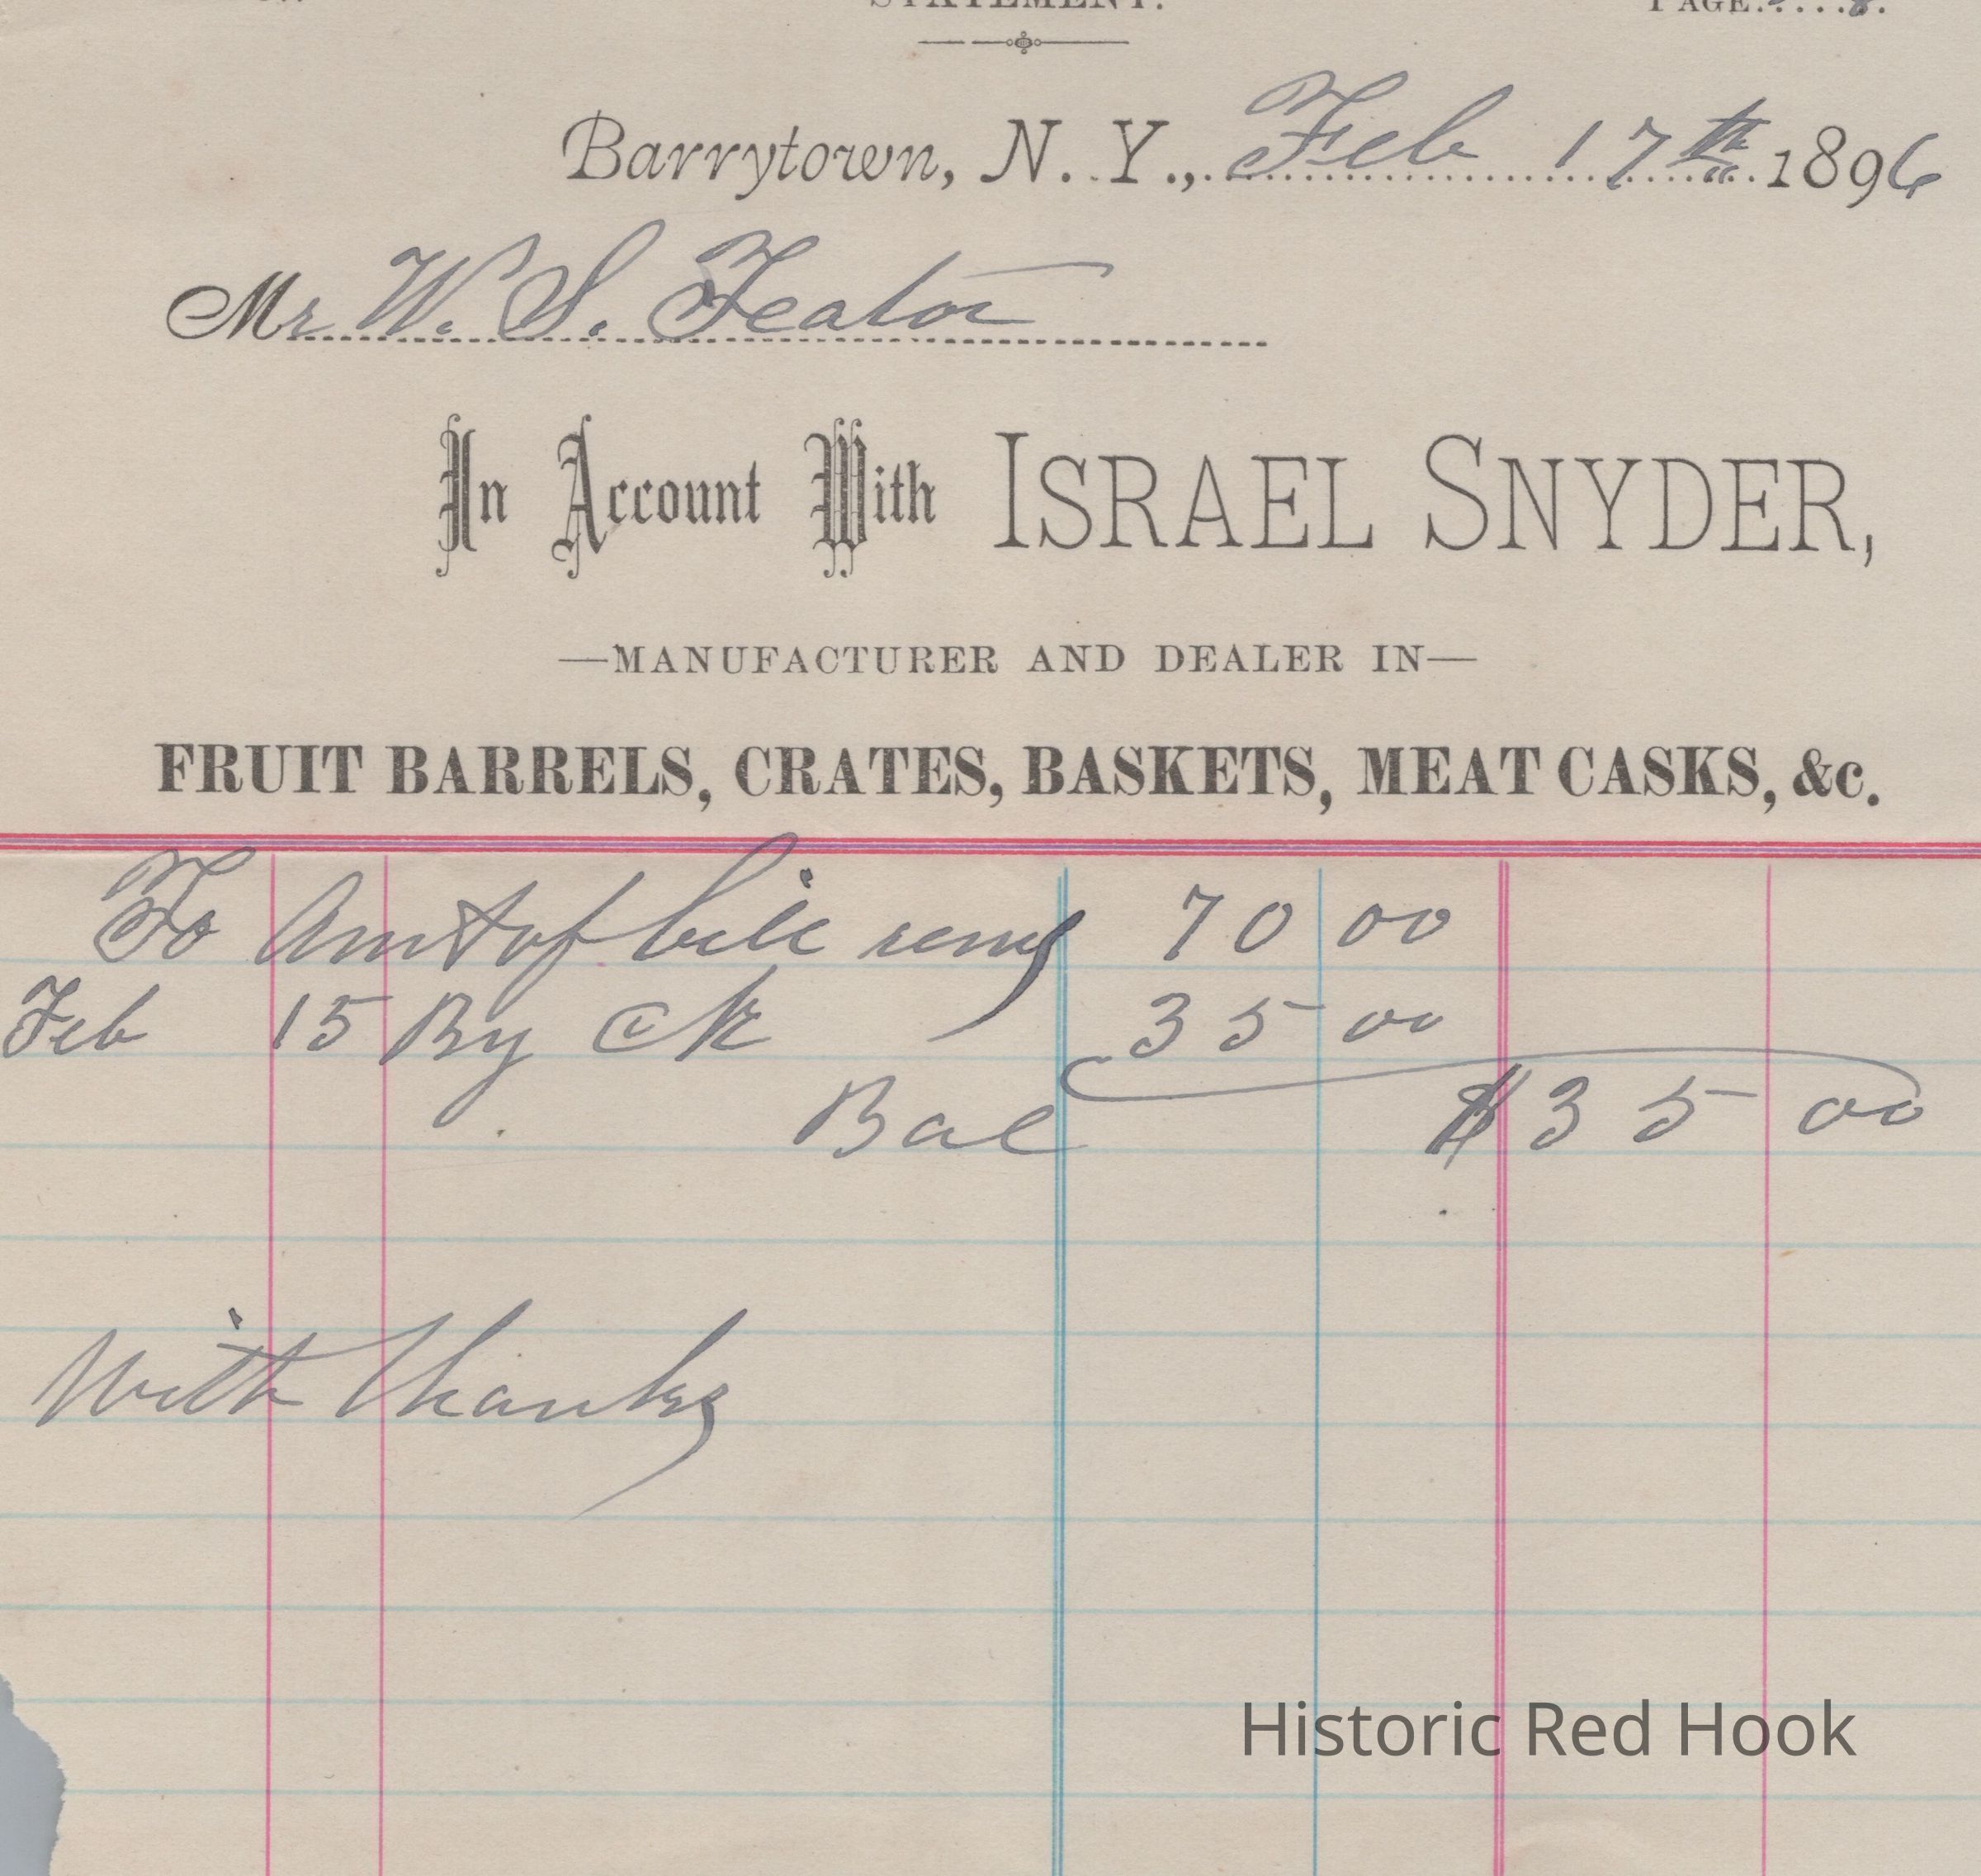 STATEMENT.
PAGE
Barrytown, N. Y., Feb 17th 1896
Mr W. S. Teator
In Account With ISRAEL SNYDER,
—MANUFACTURER AND DEALER IN—
FRUIT BARRELS, CRATES, BASKETS, MEAT CASKS, &c.
To Amt of bill 70 00
Feb 15 By Ck 35 00
Bal $35 00
With Thanks
Historic Red Hook